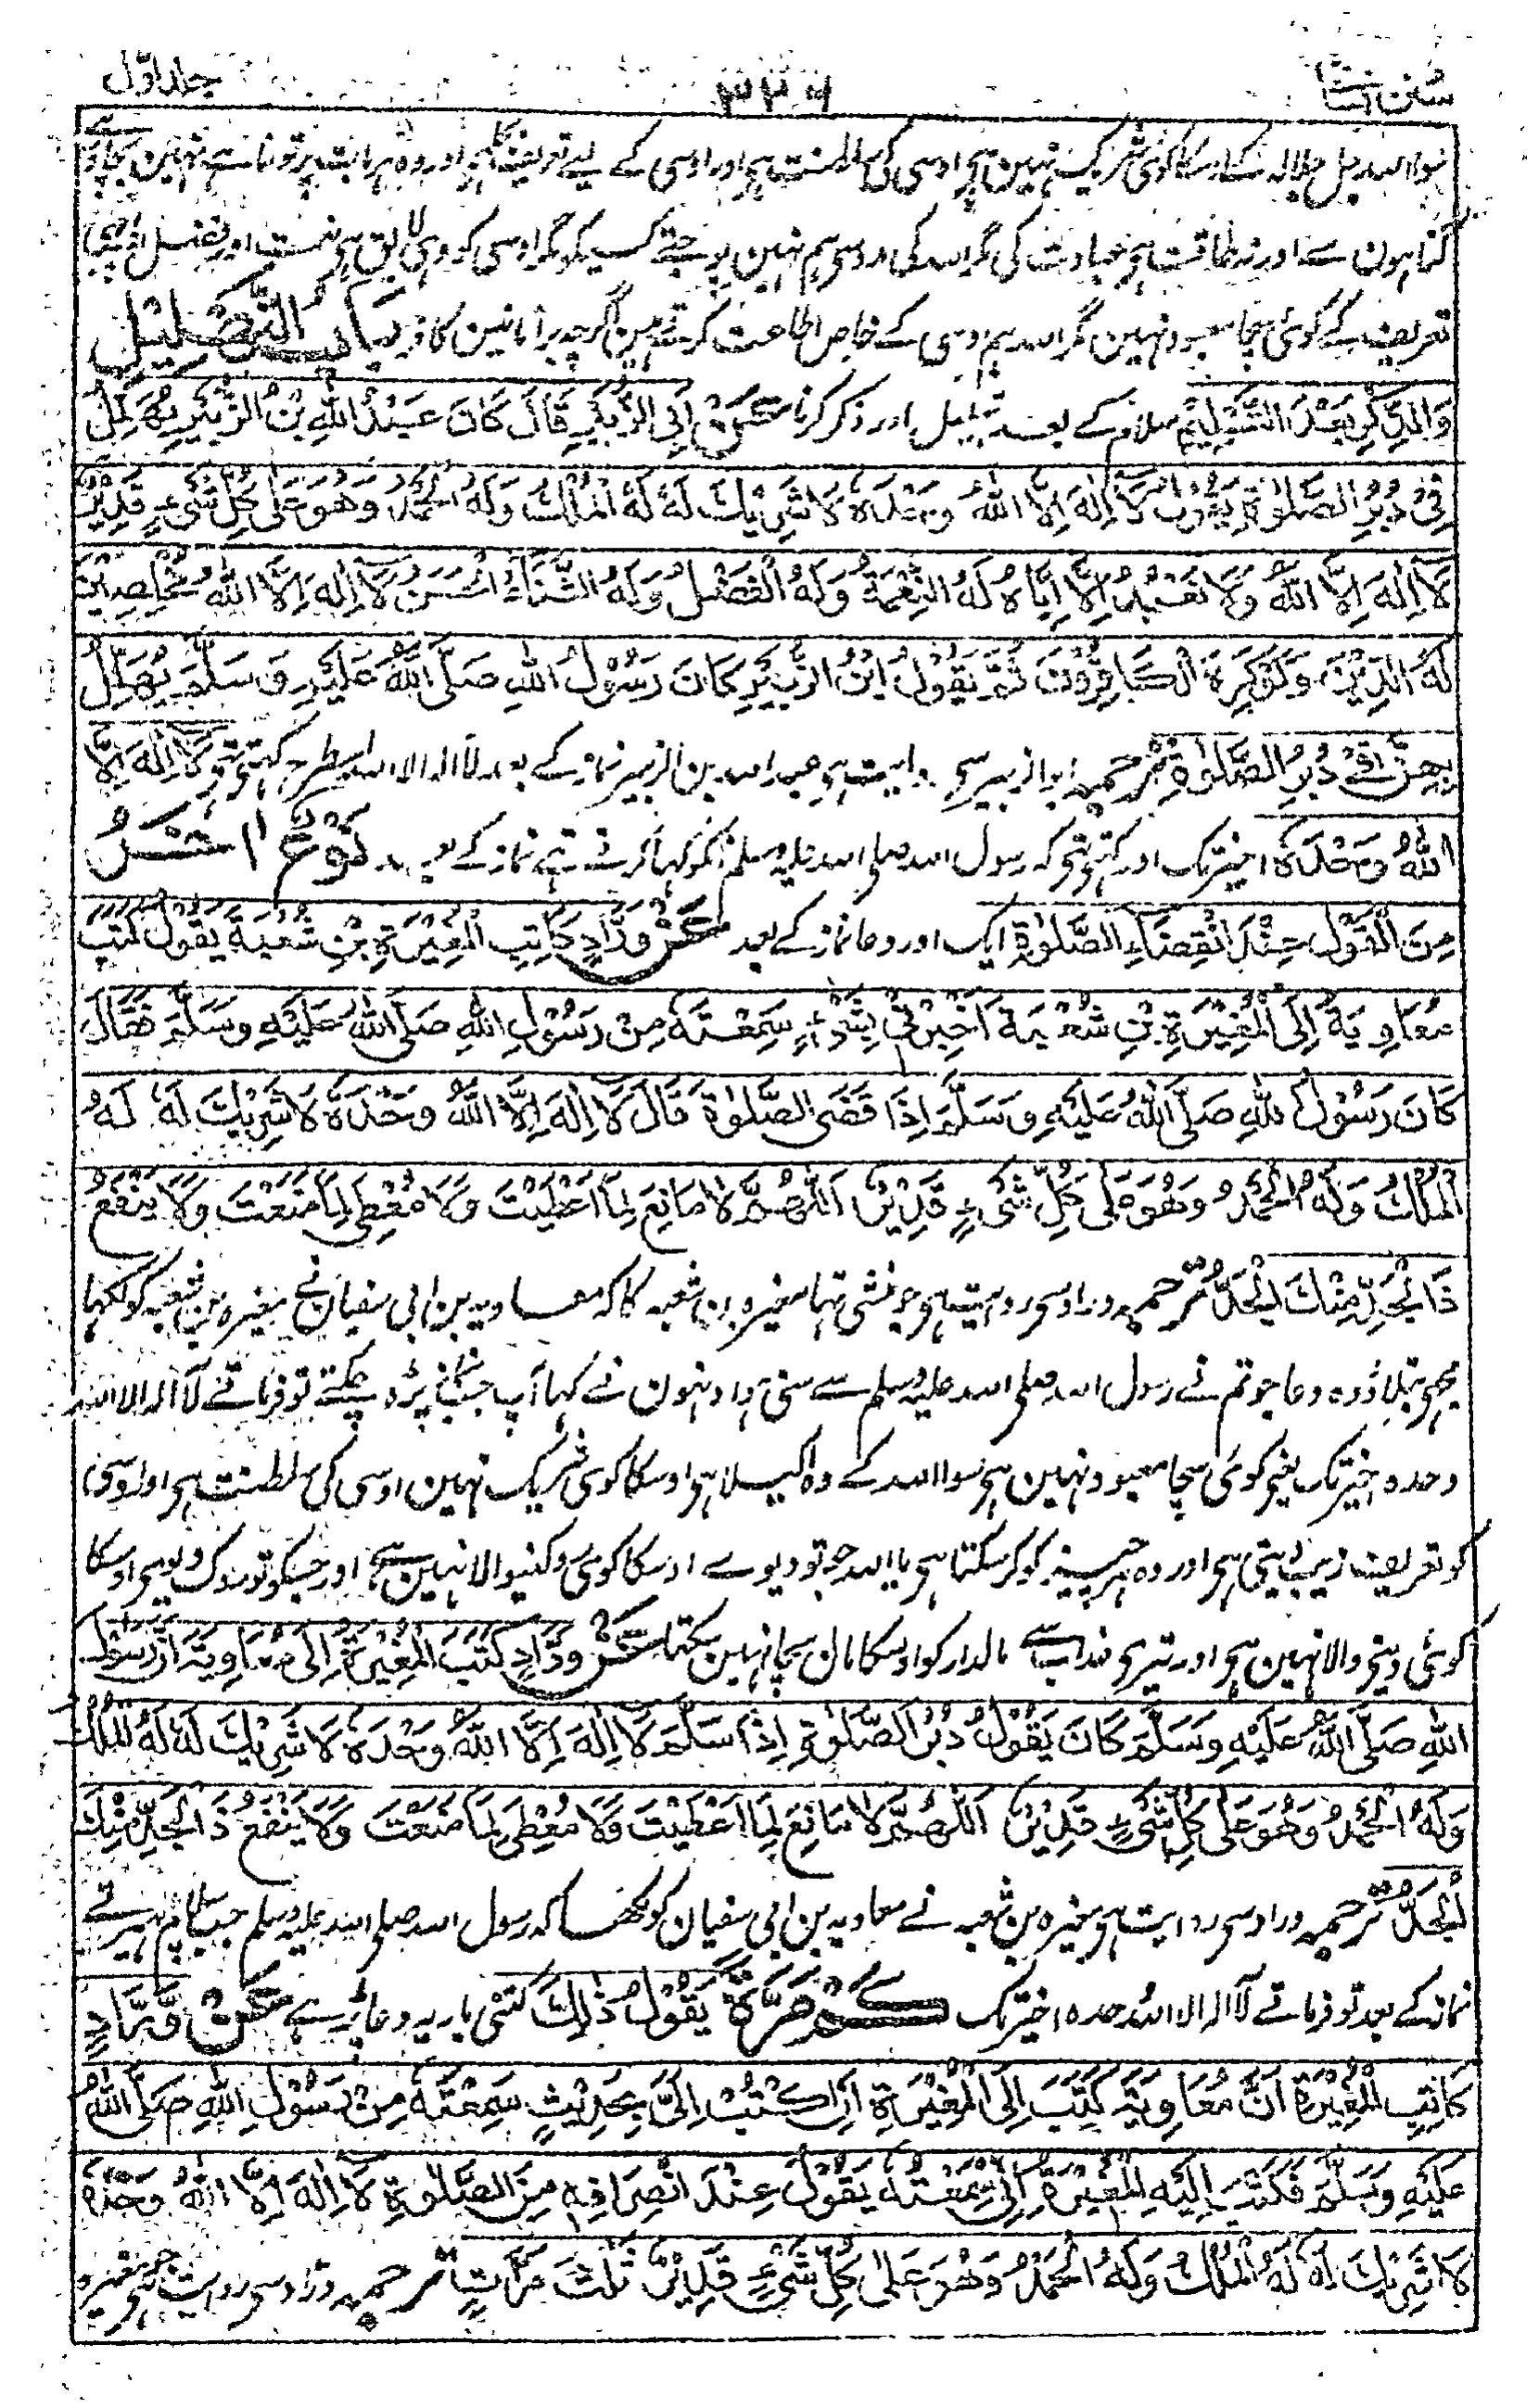 سنن نسائی ۳۲۶ جلد اوّل
سوا اللہ جل جلالہ کے اسکا کوئی شریک نہین ہی اوسی کی سلطنت ہی اور اوسی کے لیے تعریف ہی اور وہ ہر بات پر توانا ہے نہین بچاؤ
گناہون سے اور نہ طاقت ہی عبادت کی مگر اللہ کی مدد سی ہم نہین پوجتے کسیکو مگر اوسی کو وہی لائق ہی نعمت اور فضل اور
تعریف کے کوئی سچا معبود نہین مگر اللہ ہم اوسی کے خاص اطاعت کرتے ہین اگرچہ برا مانین کافر بَابُ التَّهْلِيْلِ
وَالذِّكْرِ بَعْدَ التَّسْلِيْمِ سلام کے بعد تہلیل اور ذکر کرنا عَنْ اَبِي الزُّبَيْرِ قَالَ كَانَ عَبْدُ اللّٰهِ بْنُ الزُّبَيْرِ يُهَلِّلُ
فِيْ دُبُرِ الصَّلٰوةِ يَقُوْلُ لَا اِلٰهَ اِلَّا اللّٰهُ وَحْدَهٗ لَا شَرِيْكَ لَهٗ لَهُ الْمُلْكُ وَلَهُ الْحَمْدُ وَهُوَ عَلٰى كُلِّ شَيْءٍ قَدِيْرٌ
لَا اِلٰهَ اِلَّا اللّٰهُ وَلَا نَعْبُدُ اِلَّا اِيَّاهُ لَهُ النِّعْمَةُ وَلَهُ الْفَضْلُ وَلَهُ الثَّنَاءُ الْحَسَنُ لَا اِلٰهَ اِلَّا اللّٰهُ مُخْلِصِيْنَ
لَهُ الدِّيْنَ وَلَوْ كَرِهَ الْكَافِرُوْنَ ثُمَّ يَقُوْلُ ابْنُ الزُّبَيْرِ كَانَ رَسُوْلُ اللّٰهِ صَلَّى اللّٰهُ عَلَيْهِ وَسَلَّمَ يُهَلِّلُ
بِهِنَّ فِيْ دُبُرِ الصَّلٰوةِ ترجمہ ابو الزبیر سی روایت ہی عبد اللہ بن الزبیر نماز کے بعد لا الہ الا اللہ اسطرح کہتی تہی لَا اِلٰهَ اِلَّا
اللّٰهُ وَحْدَهٗ اخیر تک اور کہتی تہی کہ رسول اللہ صلی اللہ علیہ وسلم انکو کہا کرتے تہے نماز کے بعد نَوْعٌ اٰخَرُ
مِنَ الْقَوْلِ عِنْدَ انْقِضَاءِ الصَّلٰوةِ ایک اور دعا نماز کے بعد عَنْ وَرَّادٍ كَاتِبِ الْمُغِيْرَةِ بْنِ شُعْبَةَ يَقُوْلُ كَتَبَ
مُعَاوِيَةُ اِلَى الْمُغِيْرَةِ بْنِ شُعْبَةَ اَخْبِرْنِيْ بِشَيْءٍ سَمِعْتَهٗ مِنْ رَسُوْلِ اللّٰهِ صَلَّى اللّٰهُ عَلَيْهِ وَسَلَّمَ فَقَالَ
كَانَ رَسُوْلُ اللّٰهِ صَلَّى اللّٰهُ عَلَيْهِ وَسَلَّمَ اِذَا قَضَى الصَّلٰوةَ قَالَ لَا اِلٰهَ اِلَّا اللّٰهُ وَحْدَهٗ لَا شَرِيْكَ لَهٗ لَهُ
الْمُلْكُ وَلَهُ الْحَمْدُ وَهُوَ عَلٰى كُلِّ شَيْءٍ قَدِيْرٌ اَللّٰهُمَّ لَا مَانِعَ لِمَا اَعْطَيْتَ وَلَا مُعْطِيَ لِمَا مَنَعْتَ وَلَا يَنْفَعُ
ذَا الْجَدِّ مِنْكَ الْجَدُّ ترجمہ وراد سی روایت ہی جو منشی تہا مغیرہ بن شعبہ کا کہ معاویہ بن ابی سفیان نے مغیرہ بن شعبہ کو لکہا
مجہی بتلاؤ وہ دعا جو تم نے رسول اللہ صلی اللہ علیہ وسلم سے سنی ہو اونہون نے کہا آپ جب نماز پڑہ چکتے تو فرماتے لا الہ الا اللہ
وحدہ اخیر تک یعنی کوئی سچا معبود نہین ہی سوا اللہ کے وہ اکیلا ہی اوسکا کوئی شریک نہین اوسی کی سلطنت ہی اور اوسی
کو تعریف زیب دیتی ہی اور وہ ہر چیز کو کر سکتا ہی یا اللہ جو تو دیوے اوسکا کوئی روکنیوالا نہین ہے اور جسکو تو روک دیوی اوسکا
کوئی دینی والا نہین ہی اور تیری عذاب سے مالدار کو اوسکا مال بچا نہین سکتا عَنْ وَرَّادٍ كَتَبَ الْمُغِيْرَةُ اِلٰى مُعَاوِيَةَ اَنَّ رَسُوْلَ
اللّٰهِ صَلَّى اللّٰهُ عَلَيْهِ وَسَلَّمَ كَانَ يَقُوْلُ دُبُرَ الصَّلٰوةِ اِذَا سَلَّمَ لَا اِلٰهَ اِلَّا اللّٰهُ وَحْدَهٗ لَا شَرِيْكَ لَهٗ لَهُ الْمُلْكُ
وَلَهُ الْحَمْدُ وَهُوَ عَلٰى كُلِّ شَيْءٍ قَدِيْرٌ اَللّٰهُمَّ لَا مَانِعَ لِمَا اَعْطَيْتَ وَلَا مُعْطِيَ لِمَا مَنَعْتَ وَلَا يَنْفَعُ ذَا الْجَدِّ مِنْكَ
الْجَدُّ ترجمہ وراد سی روایت ہی مغیرہ بن شعبہ نے معاویہ بن ابی سفیان کو لکہا کہ رسول اللہ صلی اللہ علیہ وسلم جب سلام پہیرتے
نماز کے بعد تو فرماتے لا الہ الا اللہ وحدہ اخیر تک كَمْ مَرَّةً يَقُوْلُ ذٰلِكَ کتنی بار یہ دعا پڑہے عَنْ وَرَّادٍ
كَاتِبِ الْمُغِيْرَةِ اَنَّ مُعَاوِيَةَ كَتَبَ اِلَى الْمُغِيْرَةِ اَنِ اكْتُبْ اِلَيَّ بِحَدِيْثٍ سَمِعْتَهٗ مِنْ رَسُوْلِ اللّٰهِ صَلَّى اللّٰهُ
عَلَيْهِ وَسَلَّمَ فَكَتَبَ اِلَيْهِ الْمُغِيْرَةُ اِنِّيْ سَمِعْتُهٗ يَقُوْلُ عِنْدَ انْصِرَافِهٖ مِنَ الصَّلٰوةِ لَا اِلٰهَ اِلَّا اللّٰهُ وَحْدَهٗ
لَا شَرِيْكَ لَهٗ لَهُ الْمُلْكُ وَلَهُ الْحَمْدُ وَهُوَ عَلٰى كُلِّ شَيْءٍ قَدِيْرٌ ثَلٰثَ مَرَّاتٍ ترجمہ وراد سی روایت ہی جو مغیرہ